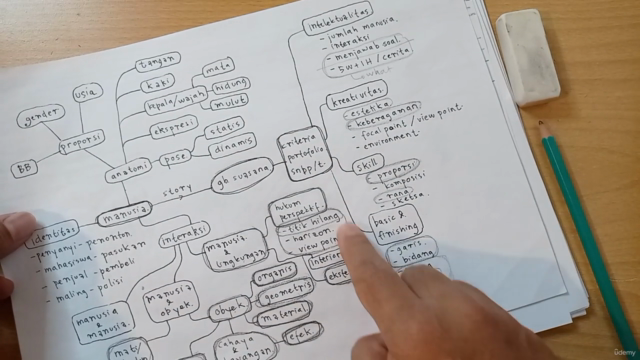 intelektualitas
- jumlah manusia.
- interaksi
- menjawab soal
- 5W+1H / cerita
kreativitas
- estetika
- keberagaman
- focal point / view point
- environment.
skill
- proporsi
- komposisi
- sketsa.
basic &
finishing
- garis.
- bidang
kriteria
portofolio
snbp/t.
gb suasana
story
tangan
kaki
kepala/wajah
mata
hidung
mulut
ekspresi
pose
statis
dinamis
anatomi
proporsi
gender
usia
BB
manusia
identitas
- penyanyi - penonton
- mahasiswa - pasukan
- penjual - pembeli
- maling - polisi
interaksi
manusia
&
manusia.
manusia
&
obyek.
manusia
lingkungan
hukum
perspektif.
- titik hilang
- horizon.
view point
interior
obyek
organis
geometris
material
cahaya
&
efek
udemy